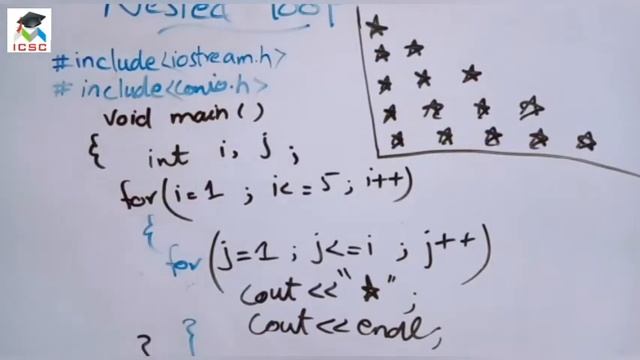 ICSC
Nested loop
#include<iostream.h>
#include<conio.h>
void main()
{ int i, j ;
for(i=1 ; i<=5 ; i++)
{
for(j=1 ; j<=i ; j++)
cout<<"★" ;
cout<<endl;
} }